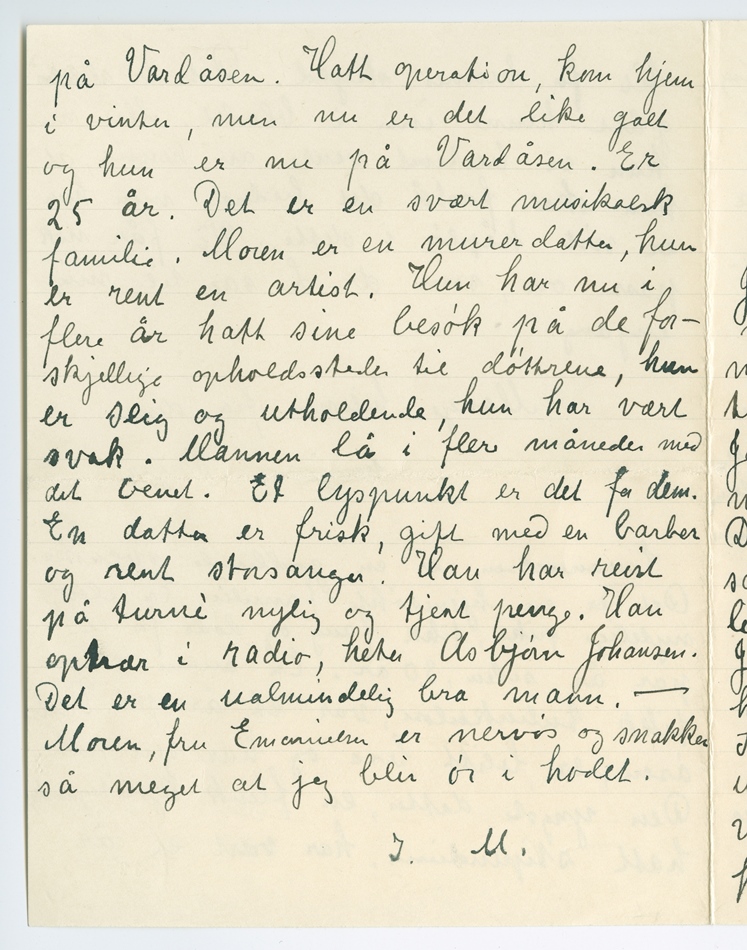 på Vardåsen. Hatt operation, kom hjem
i vinter, men nu er det like galt
og hun er nu på Vardåsen. Er
25 år. Det er en svært musikalsk
familie. Moren er en murerdatter, hun
er rent en artist. Hun har nu i
flere år hatt sine besøk på de for-
skjellige opholdssteder til døttrene, hun
er seig og utholdende, hun har vært
svak. Mannen lå i flere måneder med
det benet. Et lyspunkt er det for dem.
En datter er frisk, gift med en barber
og rent storsanger. Han har reist
på turnè nylig og tjent penge. Han
optrær i radio, heter Asbjørn Johansen.
Det er en ualmindelig bra mann. —
Moren, fru er nervøs og snakker
så meget at jeg blir ør i hodet.
J. M.